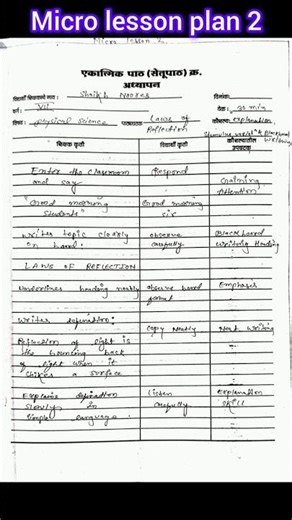 Micro lesson plan 2
Micro lesson 2
एकात्मिक पाठ (सेतूपाठ) क्र.
अध्यापन
Shaikh Noores
दिनांक:
वर्ग: VII
वेळ: 20 min
विषय: physical science
Laws of Reflection
explanation
शिक्षक कृती
विद्यार्थी कृती
Enter the classroom and say
Respond
Gaining Attention
"Good morning students"
Good morning sir
writes topic clearly on board.
observe carefully
Blackboard writing Heading
LAWS OF REFLECTION
Underlines heading neatly
observe board format
Emphases
writes definition:
copy neatly
Neat writing
Reflection of light is
the bouncing back
of light when it
strikes a surface
Explains definition
slowly in
simple language
Listen carefully
Explanation
SKILL